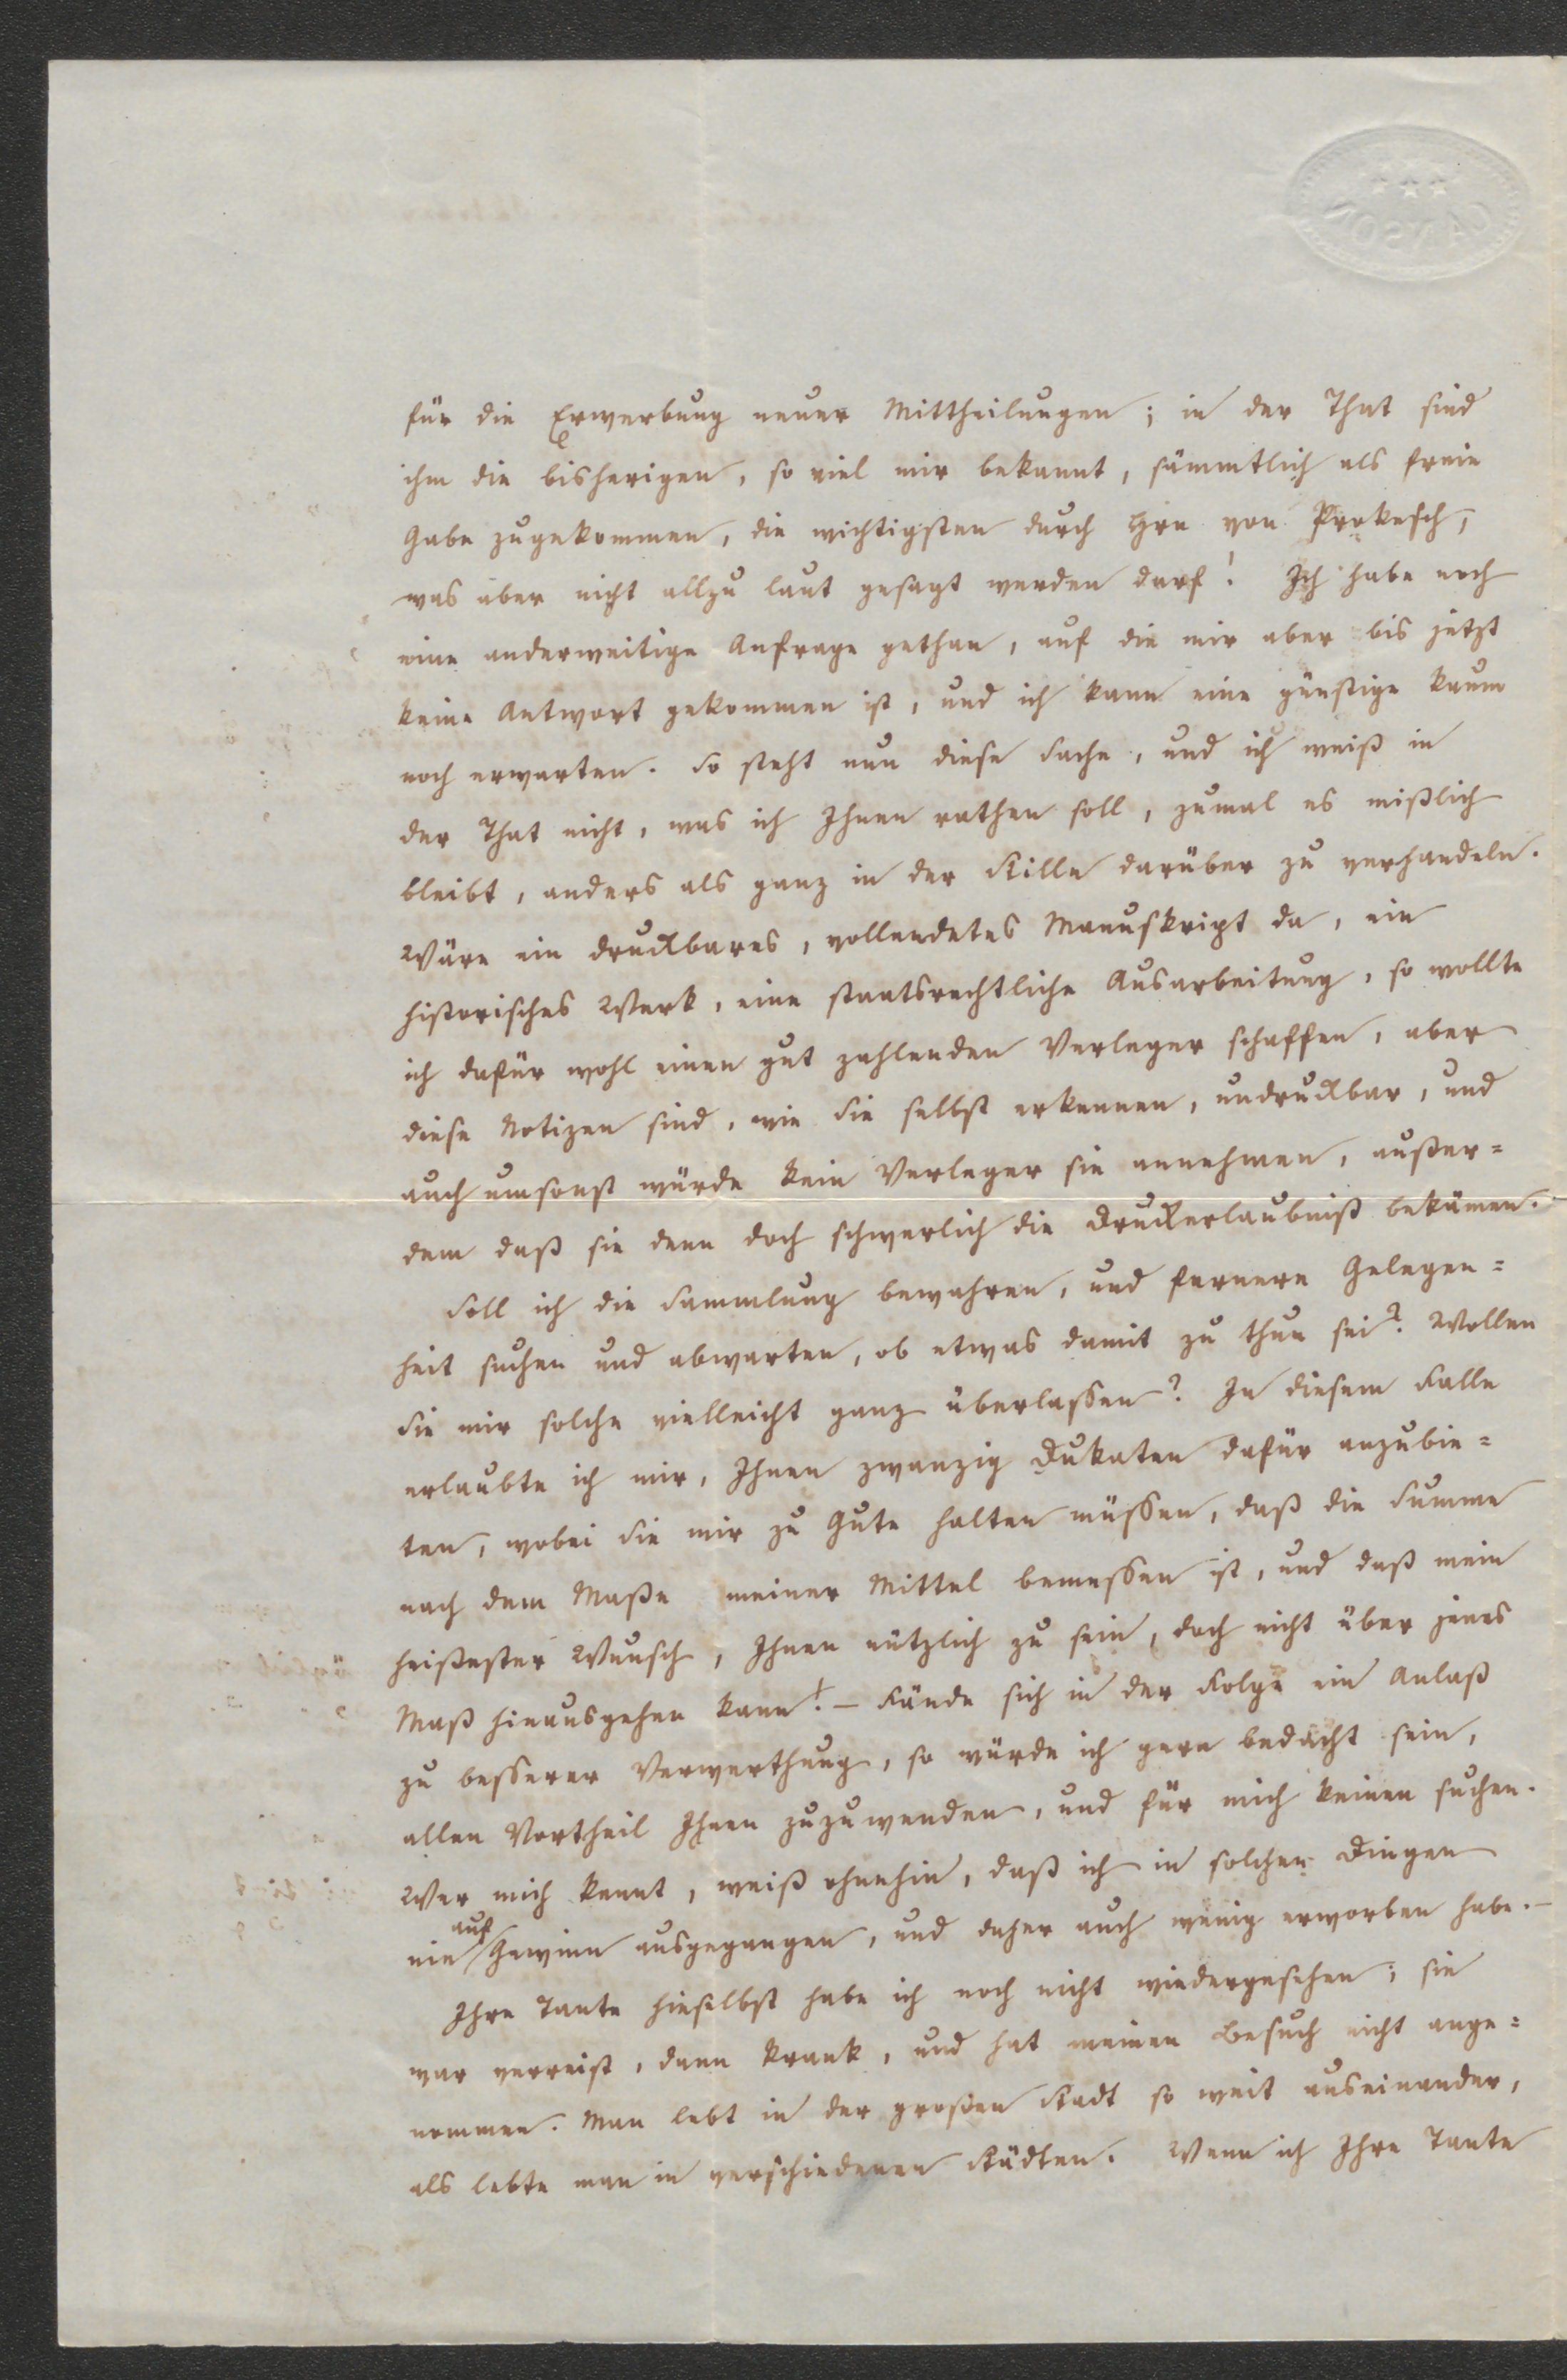 CANSON
für die Erwerbung neuer Mittheilungen; in der That sind
ihm die bisherigen, so viel mir bekannt, sämmtlich als freie
Gabe zugekommen, die wichtigsten durch Hrn von Prokesch,
was aber nicht allzu laut gesagt werden darf! Ich habe noch
eine anderweitige Anfrage gethan, auf die mir aber bis jetzt
keine Antwort gekommen ist, und ich kann eine günstige kaum
noch erwarten. So steht nun diese Sache, und ich weiß in
der That nicht, was ich Ihnen rathen soll, zumal es mißlich
bleibt, anders als ganz in der Stille darüber zu verhandeln.
Wäre ein druckbares, vollendetes Manuskript da, ein
historisches Werk, eine staatsrechtliche Ausarbeitung, so wollte
ich dafür wohl einen gut zahlenden Verleger schaffen, aber
diese Notizen sind, wie Sie selbst erkennen, undruckbar, und
auch umsonst würde kein Verleger sie annehmen, außer=
dem daß sie denn doch schwerlich die Druckerlaubniß bekämen.
Soll ich die Sammlung bewahren, und fernere Gelegen=
heit suchen und abwarten, ob etwas damit zu thun sei? Wollen
Sie mir solche vielleicht ganz überlassen? In diesem Falle
erlaubte ich mir, Ihnen zwanzig Dukaten dafür anzubie=
ten, wobei Sie mir zu Gute halten müssen, daß die Summe
nach dem Maße meiner Mittel bemessen ist, und daß mein
heißester Wunsch, Ihnen nützlich zu sein, doch nicht über jenes
Maß hinausgehen kann! – Fände sich in der Folge ein Anlaß
zu besserer Verwerthung, so würde ich gern bedacht sein,
allen Vortheil Ihnen zuzuwenden, und für mich keinen suchen.
Wer mich kennt, weiß ohnehin, daß ich in solchen Dingen
nie auf Gewinn ausgegangen, und daher auch wenig erworben habe. –
Ihre Tante hieselbst habe ich noch nicht wiedergesehen; sie
war verreist, dann krank, und hat meinen Besuch nicht ange=
nommen. Man lebt in der großen Stadt so weit auseinander,
als lebte man in verschiedenen Städten. Wenn ich Ihre Tante